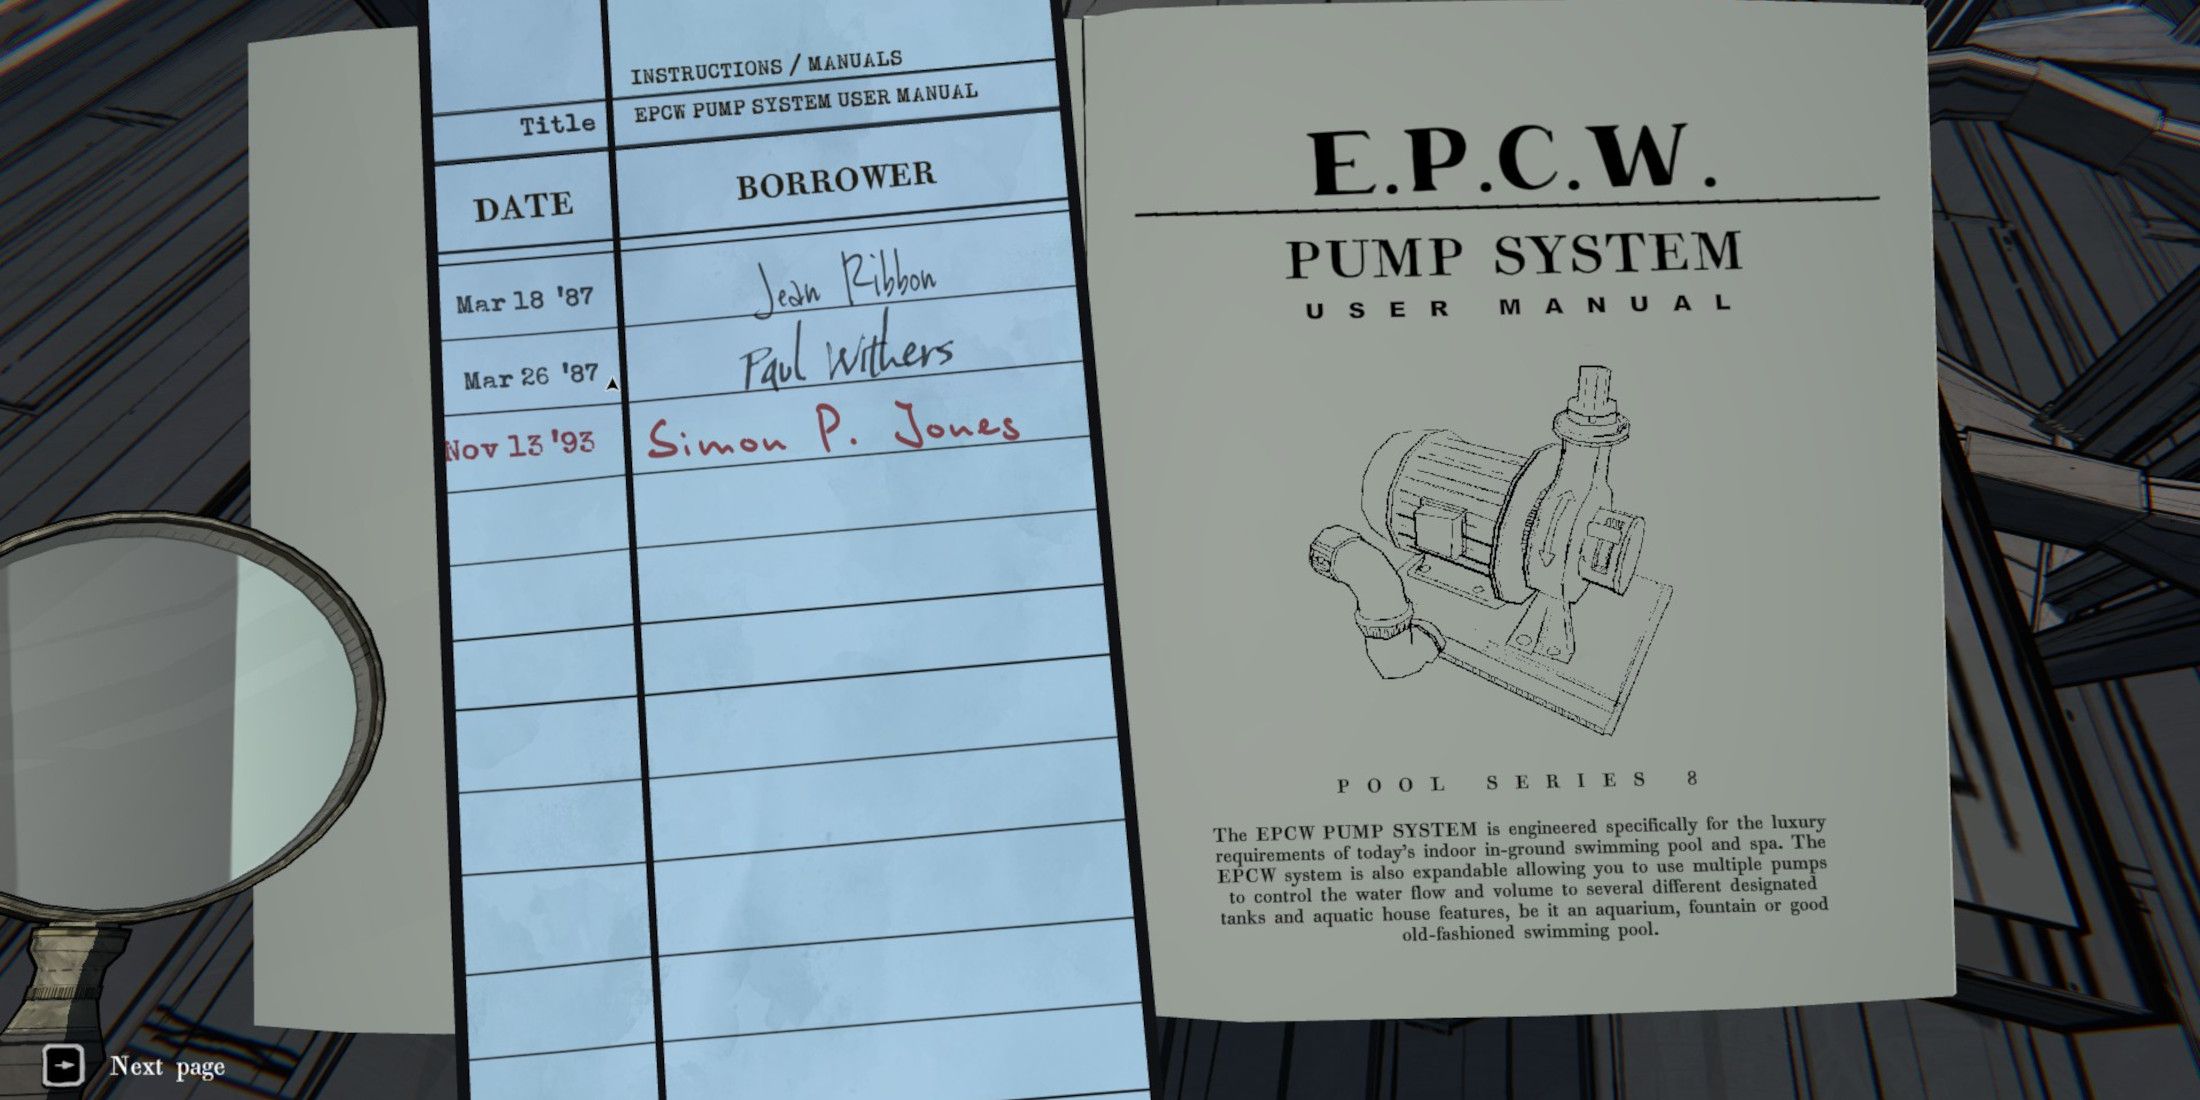 INSTRUCTIONS / MANUALS
Title EPCW PUMP SYSTEM USER MANUAL
DATE BORROWER
Mar 18 '87 Jean Ribbon
Mar 26 '87 Paul Withers
Nov 13 '93 Simon P. Jones
E.P.C.W.
PUMP SYSTEM
USER MANUAL
POOL SERIES 8
The EPCW PUMP SYSTEM is engineered specifically for the luxury
requirements of today's indoor in-ground swimming pool and spa. The
EPCW system is also expandable allowing you to use multiple pumps
to control the water flow and volume to several different designated
tanks and aquatic house features, be it an aquarium, fountain or good
old-fashioned swimming pool.
Next page